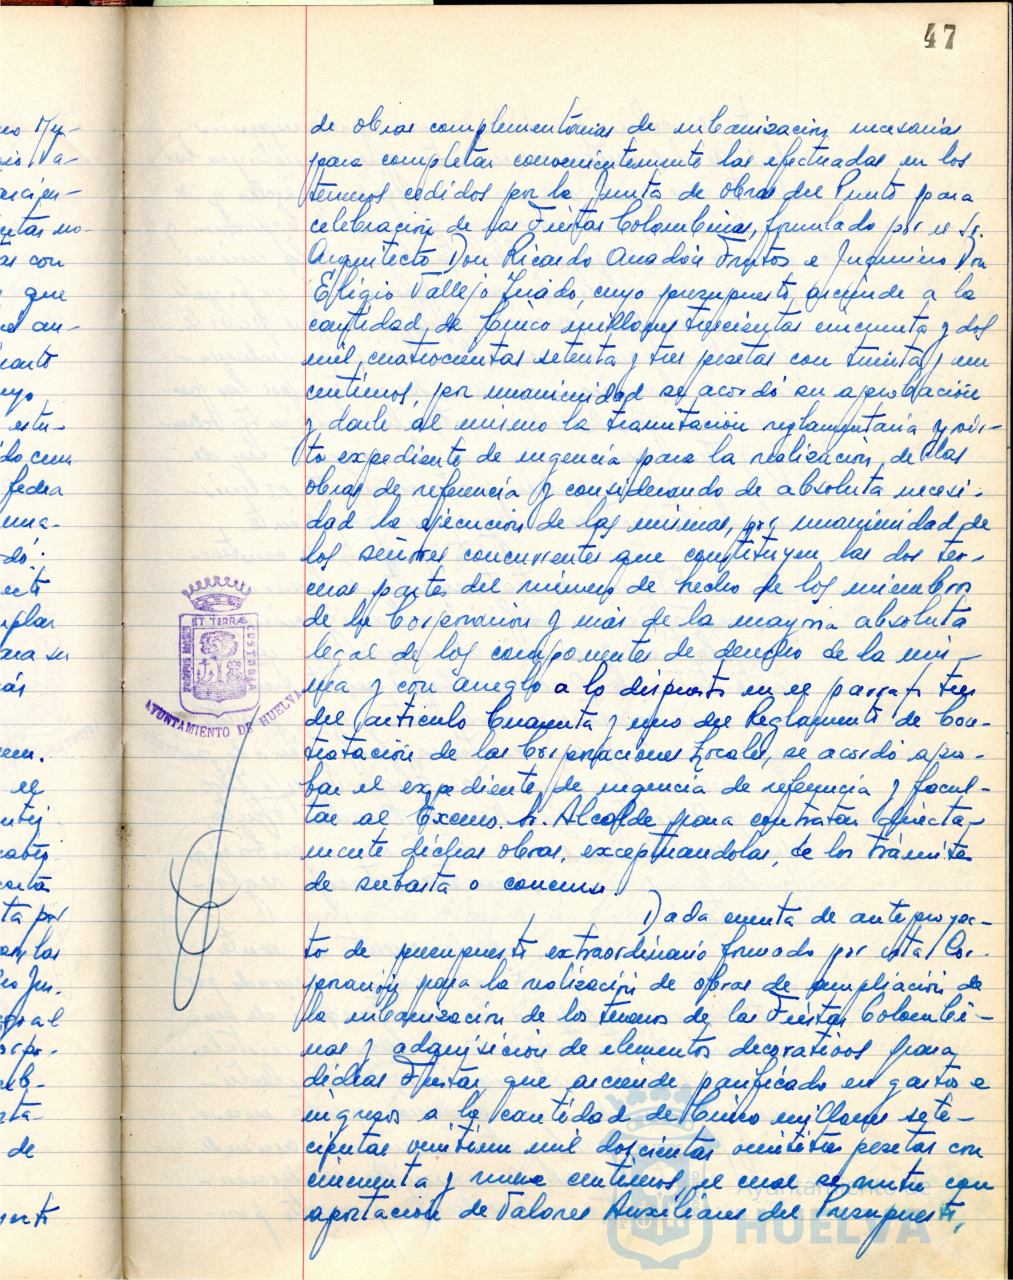 47
de obras complementarias de urbanización necesarias
para completar convenientemente las efectuadas en los
terrenos cedidos por la Junta de Obras del Puerto para
celebración de las Fiestas Colombinas, formulado por el Sr.
Arquitecto Don Ricardo Anadón Frutos e Ingeniero Don
Eligio Vallejo Jurado, cuyo presupuesto, asciende a la
cantidad, de Cinco millones trescientas cincuenta y dos
mil, cuatrocientas setenta y tres pesetas con treinta y un
centimos, por unanimidad se acordó su aprobación
y darle al mismo la tramitación reglamentaria y vis-
to expediente de urgencia para la realización de las
obras de referencia y considerando de absoluta necesi-
dad la ejecución de las mismas, por unanimidad de
los señores concurrentes que constituyen las dos ter-
ceras partes del número de hecho de los miembros
de la Corporación y más de la mayoria absoluta
legal de los componentes de derecho de la mis-
ma y con arreglo a lo dispuesto en el parrafo tres
del articulo Cuarenta y uno del Reglamento de Con-
tratación de las Corporaciones Locales, se acordó apro-
bar el expediente de urgencia de referencia y facul-
tar al Excmo. Sr. Alcalde para contratar directa-
mente dichas obras, exceptuandolas, de los trámites
de subasta o concurso.
Dada cuenta de anteproyec-
to de presupuesto extraordinario formado por esta Cor-
poración para la realización de obras de ampliación de
la urbanización de los terrenos de las Fiestas Colombi-
nas y adquisición de elementos decorativos para
dichas Fiestas, que asciende panificado en gastos e
ingresos a la cantidad de Cinco millones sete-
cientas veintiun mil doscientas veintitres pesetas con
cincuenta y nueve centimos, el cual se nutre con
aportación de Valores Auxiliares del Presupuesto,
ET TERRÆ
CUSTODIA
PORTUS MARIS
AYUNTAMIENTO DE HUELVA
Ayuntamiento de
HUELVA